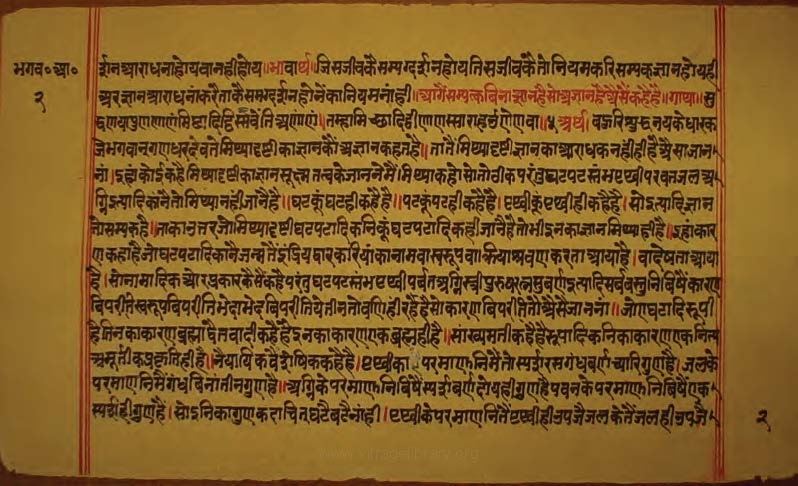 भगव॰ आ॰
२
र्शन आराधना होय वा नहीं होय॥भावार्थ॥जिस जीवकै सम्यग्दर्शन होय तिस जीवकै तो नियमकरि सम्यक्ज्ञान होय ही
अर ज्ञान आराधनां करै ताकै सम्यग्दर्शन होनेंका नियम नांही॥आगैं सम्यक्त्वबिना ज्ञान है सो अज्ञान है अैसैं कहै है॥गाथा॥सु
द्धणया पुण णाणं मिछादिट्ठिस्स वेंति अण्णाणं॥तम्हा मिच्छादिट्ठी णाणस्साराहउ णेव॥५ अर्थ॥बऊरि शुद्धनयके धारक
जे भगवान गणधरदेव ते मिथ्यादृष्टीका ज्ञानकौं अज्ञान कहत है॥तातैं मिथ्यादृष्टी ज्ञानका आराधक नहीं ही है अैसा जान
नां॥इहां कोई कहै मिथ्यादृष्टीका ज्ञान सूक्ष्मतत्वके जाननेमैं मिथ्या कहो सो तो ठीक परंतु घट पट संभ पृथ्वी परवत जल अ
ग्नि इत्यादिकनैं तो मिथ्या नहीं जानै है॥घटकूं घट ही कहै है॥पटकूं पट ही कहै है॥पृथ्वीकूं पृथ्वी ही कहै है॥सो इत्यादि ज्ञान
तो सम्यक है॥ताका उत्तर जो मिथ्यादृष्टी घटपटादिकनिकूं घटपटादिक ही जानै है तो भी इनका ज्ञान मिथ्या ही है॥इहां कार
ण कहा है जो घटपटादिकानैं जन्मतैं इंद्रियद्वारकरि यांका नाम वा स्वरूप वा क्रिया श्रवण करता आया है॥वा देषता आया
है॥सो नामादिक ओर प्रकार कैसैं कहै परंतु घट पट संभ पृथ्वी पर्वत अग्नि स्त्री पुरुष रत्न सुवर्ण इत्यादि सर्व वस्तुनिबिषैं कारण
बिपरीत स्वरूपबिपरीति भेदाभेदबिपरीति ये तीन तो वणि ही रहै है सो कारणबिपरीति तो अैसै जाननां॥जो ए घटादि रूपी
है तिनका कारण ब्रह्माद्वैतवादी कहै है इनका कारण एक ब्रह्म ही है॥सांख्यमती कहै है रूपादिकनिका कारण एक नित्य
अमूर्तीक प्रकृति ही है॥नैयायिक वैशेषिक कहै है॥पृथ्वीका परमाणूनिमैं तो स्पर्श रस गंध बर्ण च्यारि गुण है॥जलके
परमाणूनिमैं गंधबिना तीन गुण है॥अग्निके परमाणूनिबिषैं स्पर्श बर्ण दोय ही गुण है पवनके परमाणूनिबिषैं एक
स्पर्श ही गुण है॥सो इनिका गुण कदाचित् घटै बढै नांही॥पृथ्वीके परमाणूनितैं पृथ्वी ही उपजै जलकेतैं जल ही उपजै
२
www.vitragelibrary.org